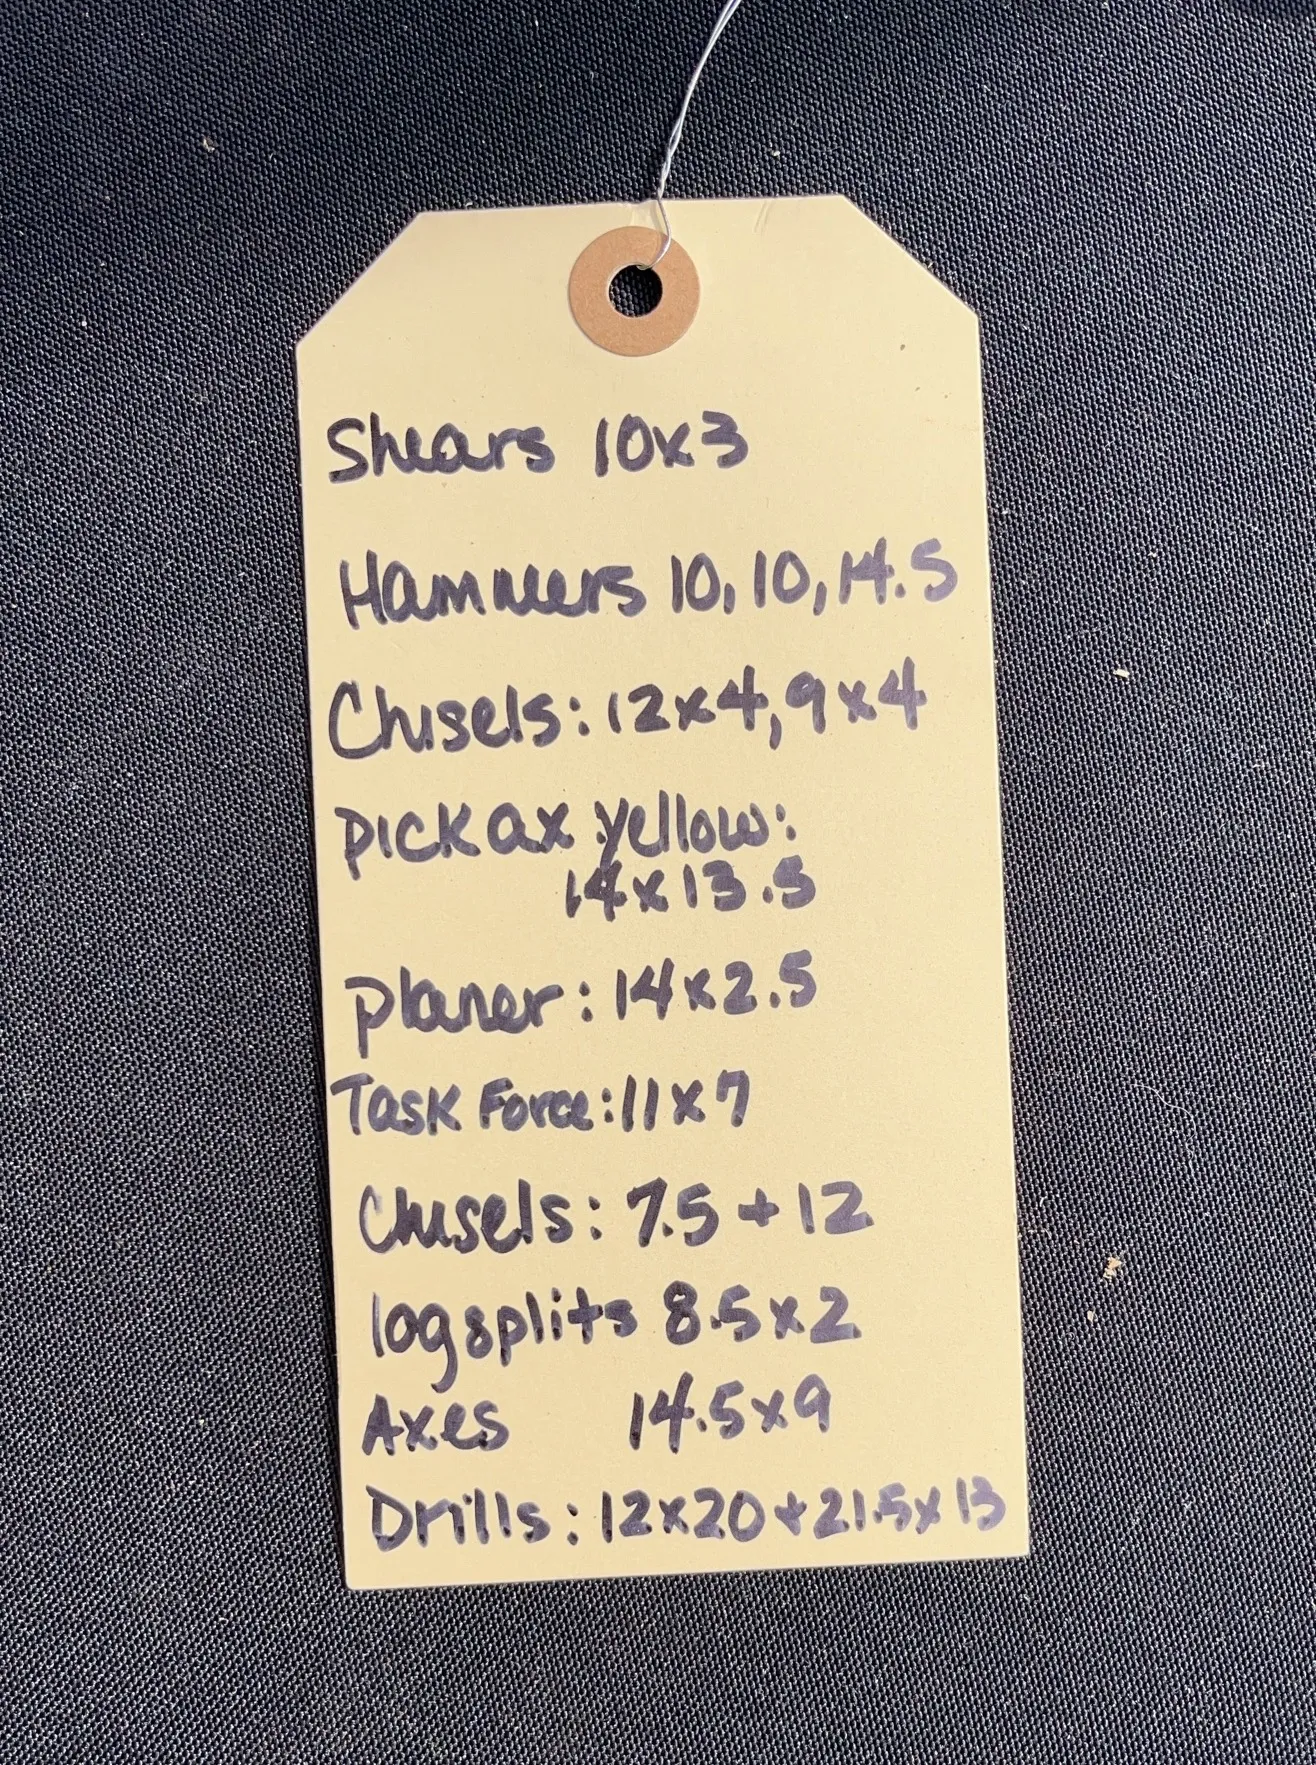 Shears 10x3
Hammers 10, 10, 14.5
Chisels: 12x4, 9x4
pick ax yellow:
14x13.5
planer: 14x2.5
Task Force: 11x7
Chisels: 7.5 + 12
logsplits 8.5x2
Axes 14.5x9
Drills: 12x20 + 21.5x13